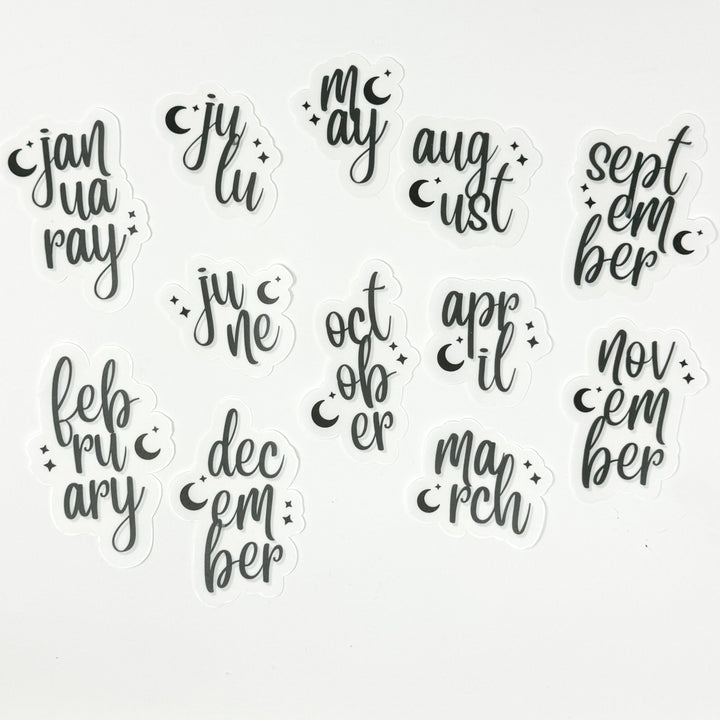 jan
ua
ray
ju
lu
m
ay
aug
ust
sept
em
ber
ju
ne
oct
ob
er
apr
il
nov
em
ber
feb
ru
ary
dec
em
ber
ma
rch